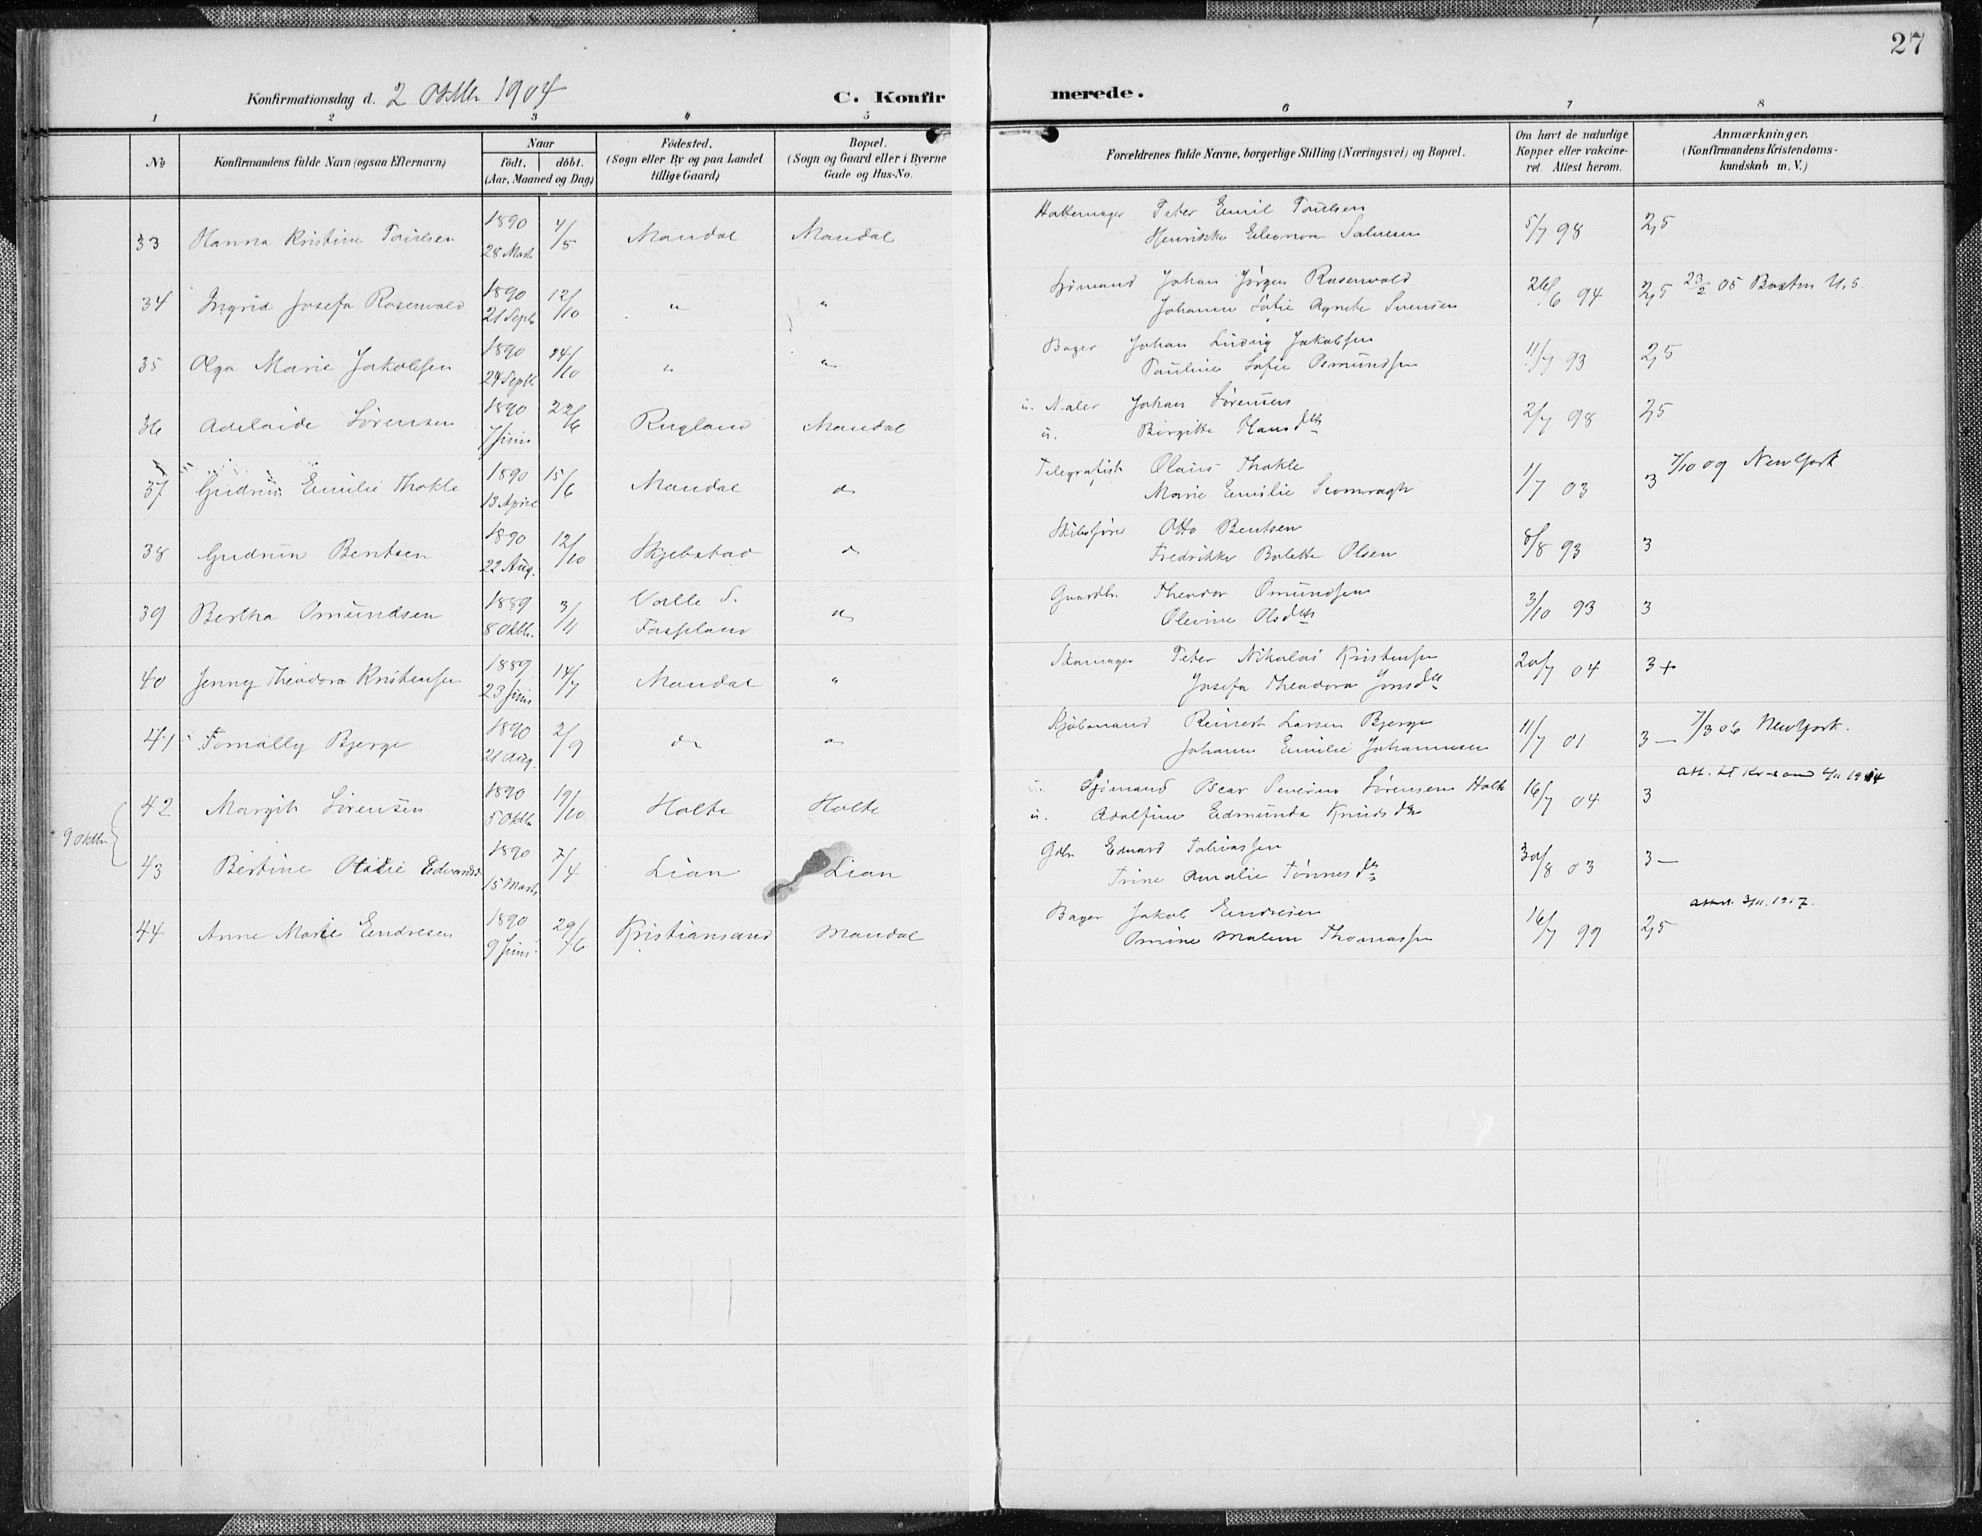 27
Konfirmationsdag d. 2 Oktbr 1904
C. Konfirmerede.
1 2 3 4 5 6 7 8
No
Konfirmandens fulde Navn (ogsaa Efternavn)
Naar
født. døbt.
(Aar, Maaned og Dag)
Fødested.
(Sogn eller By og paa Landet
tillige Gaard)
Bopæl.
(Sogn og Gaard eller i Byerne
Gade og Hus-No.
Forældrenes fulde Navne, borgerlige Stilling (Næringsvei) og Bopæl.
Om havt de naturlige
Kopper eller vakcine-
ret. Attest herom.
Anmærkninger.
(Konfirmandens Kristendoms-
kundskab m. V.)
33 Hanna Kristine Poulsen 1890 28 Marts 4/5 Mandal Mandal
Hattemager Peter Emil Poulsen 5/7 98 2,5
Henrikke Eleonora Salvesen
34 Ingrid Josefa Rosenvold 1890 21 Septb. 12/10 " "
Sjømand Johan Jørgen Rosenvold 26/6 94 2,5 23/2 05 Boston U.S.
Johanne Sofie Agnete Svensen
35 Olga Marie Jakobsen 1890 24 Septb. 24/10 " "
Bager Johan Ludvig Jakobsen 11/7 93 2,5
Pauline Sofie Osmundsen
36 Adelaide Sørensen 1890 7 Juni 22/6 Rugland Mandal
u. Maler Johan Sørensen 2/7 98 2,5
u. Birgitte Hansdtr
37 Gudrun Emilie Thokle 1890 13 April 15/6 Mandal do
Telegrafist Olaus Thokle 1/7 03 3 7/10 09 New York
Marie Emilie
38 Gudrun Bentsen 1890 22 Aug. 12/10 Skjebstad do
Skibsfører Otto Bentsen 8/8 93 3
Fredrikke Bolette Olsen
39 Bertha Omundsen 1889 8 Oktbr. 3/11 Valle S. do
Gaardbr. Theodor Omundsen 3/10 93 3
Olevine Olsdtr
40 Jenny Theodora Kristensen 1889 23 Juni 14/7 Mandal "
Skomager Peter Nikolai Kristensen 20/7 04 3+
Josefa Theodora Jonsdtr
41 Bjerge 1890 21 Aug. 2/9 do do
Kjøbmand Reinert Larsen Bjerge 11/7 01 3 — 7/3 06 New York.
Johanne Emilie Johannesen
9 Oktbr. 42 Margit Sørensen 1890 5 Oktbr. 19/10 Holte Holte
u. Sjømand Oscar Severin Sørensen Holte 16/7 04 3
u. Adolfine Edmunda Knudsdtr
43 Bertine Otilie Edvardsd. 1890 15 Marts 7/4 Lian Lian
Gdbr. Edvard Tobiassen 30/8 03 3 —
Trine Amalie Tønnesdtr
44 Anne Marie Endresen 1890 9 Juni 29/6 Kristiansand Mandal
Bager Jakob Endresen 16/7 99 2,5 Attest. 3/11. 1917.
Omine Malene Thomassen